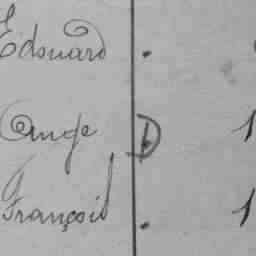 Edouard .
Ange D 1
François . 1